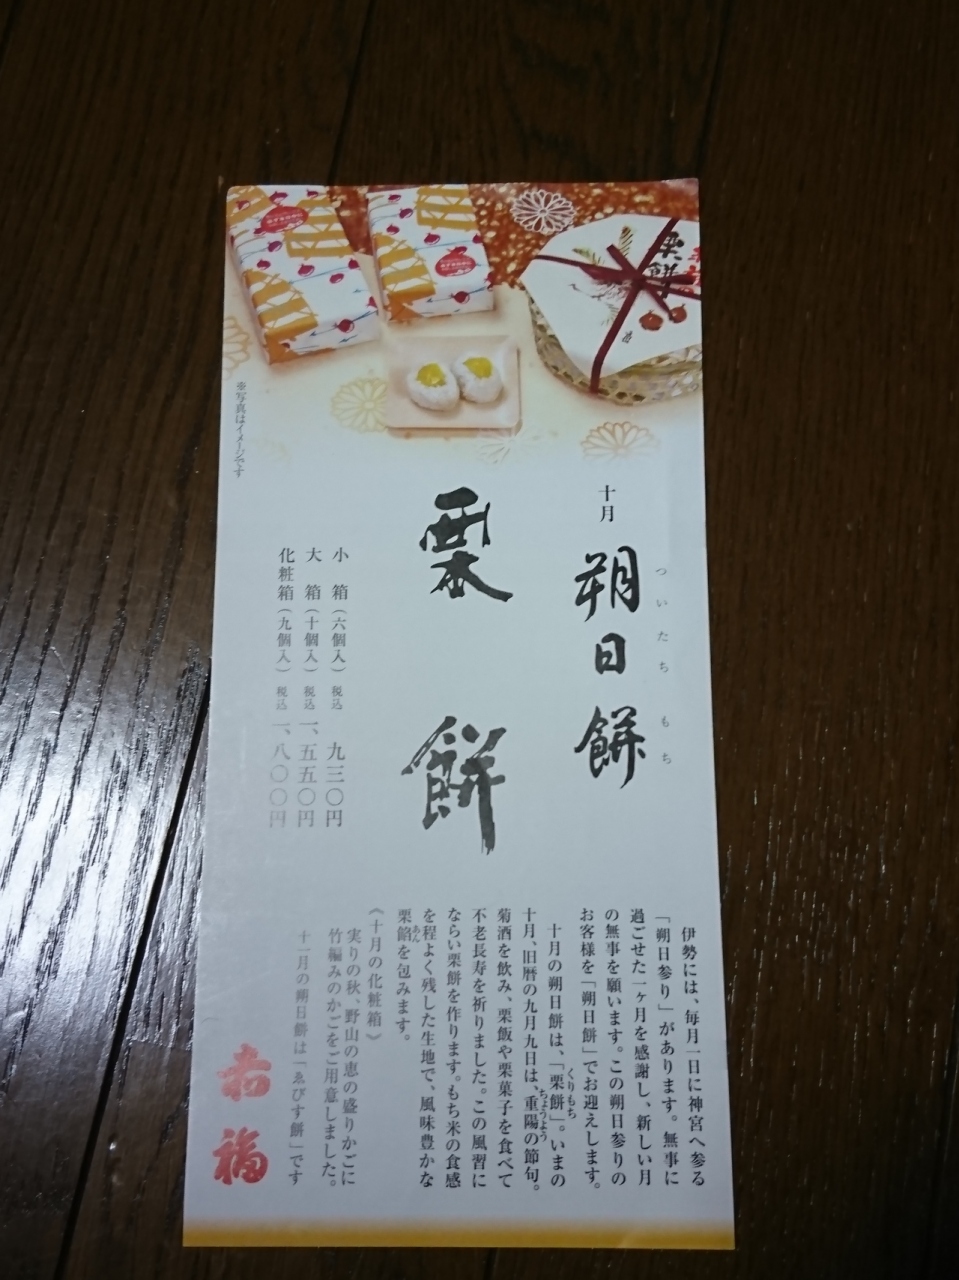 栗餅
※写真はイメージです
十月
朔日餅
ついたちもち
栗餅
小 箱(六個入)税込 九三〇円
大 箱(十個入)税込 一、五五〇円
化粧箱(九個入)税込 一、八〇〇円
伊勢には、毎月一日に神宮へ参る
「朔日参り」があります。無事に
過ごせた一ヶ月を感謝し、新しい月
の無事を願います。この朔日参りの
お客様を「朔日餅」でお迎えします。
十月の朔日餅は、「栗餅」。いまの
くりもち
十月、旧暦の九月九日は、重陽の節句。
ちょうよう
菊酒を飲み、栗飯や栗菓子を食べて
不老長寿を祈りました。この風習に
ならい栗餅を作ります。もち米の食感
を程よく残した生地で、風味豊かな
栗餡を包みます。
あん
《十月の化粧箱》
実りの秋、野山の恵の盛りかごに
竹編みのかごをご用意しました。
十一月の朔日餅は「ゑびす餅」です
赤福